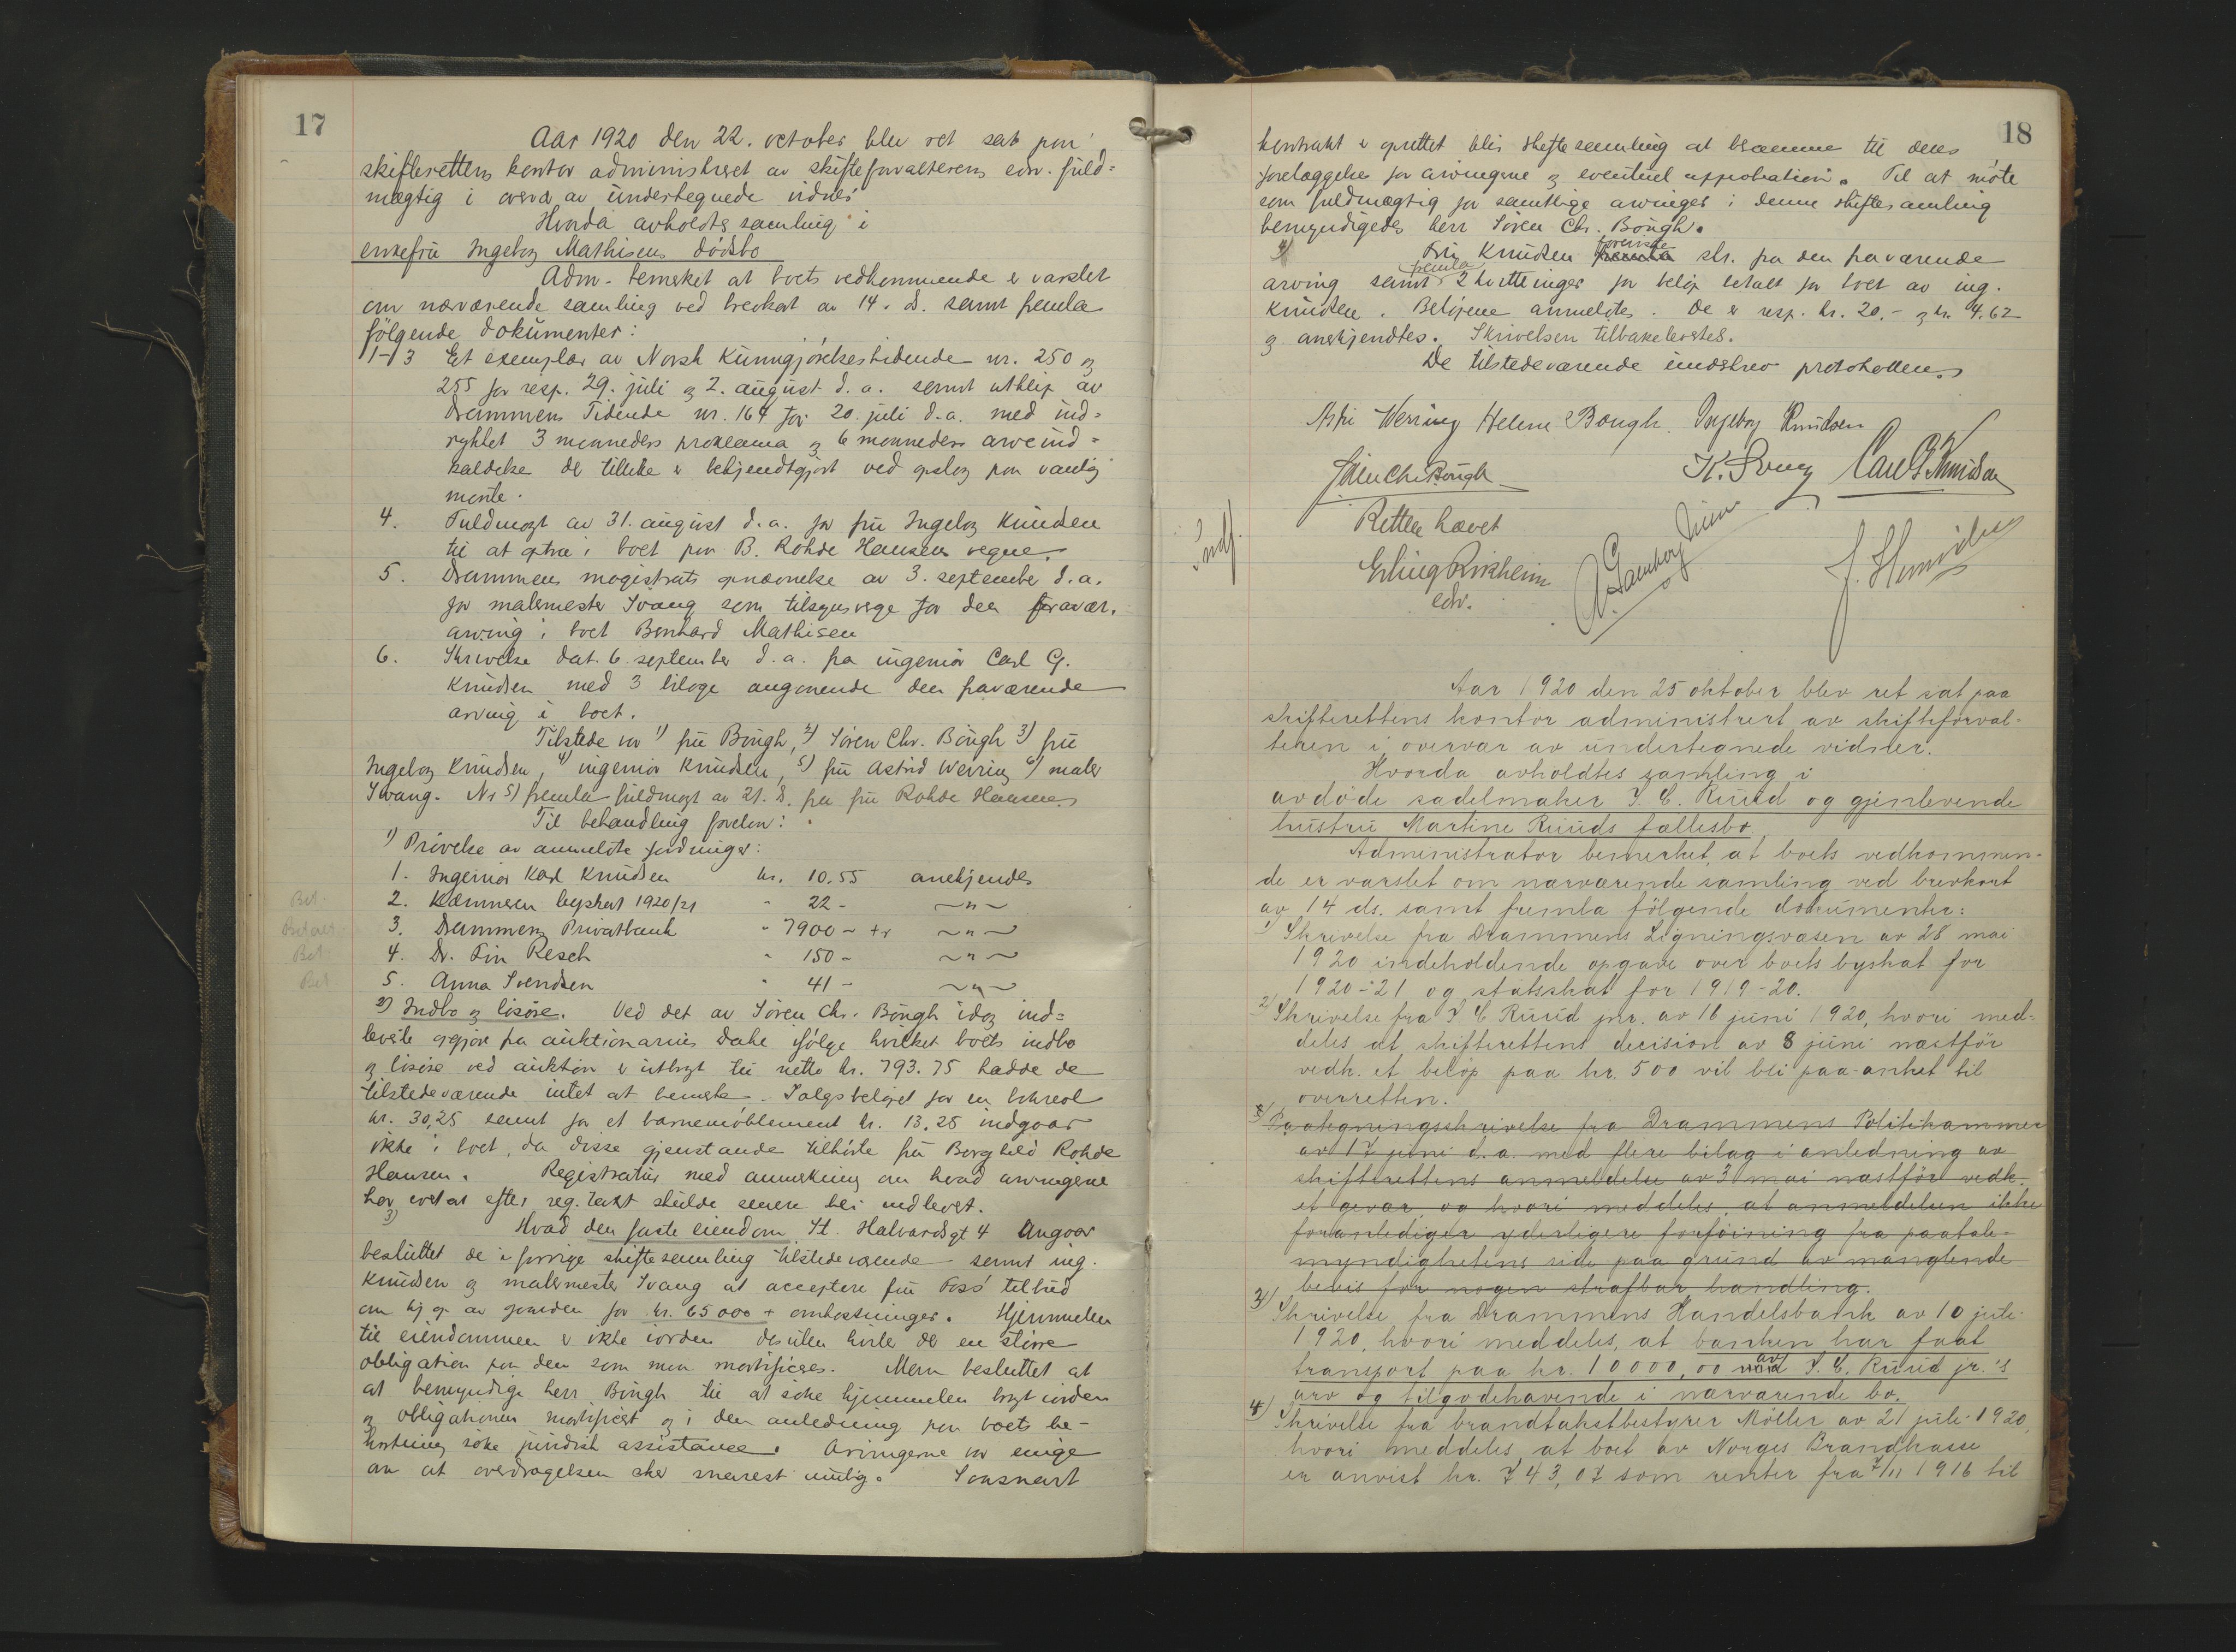 17
Aar 1920 den 22. october blev ret sat paa
skifterettens kontor administreret av skifteforvalterens edsv. fuld=
mægtig i overv. av undertegnede vidner
Hvorda avholdtes samling i
enkefru Ingeborg Mathisens dödsbo
Adm. bemerket at boets vedkommende er varslet
om nærværende samling ved brevkort av 14. ds. samt fremla
fölgende dokumenter:
1-3 Et exemplar av Norsk Kunngjörelsestidende nr. 250 og
255 for resp. 29. juli og 2. august d.a. samt utklip av
Drammens Tidende nr. 164 for 20. juli d.a. med ind=
rykket 3 maaneders proklama og 6 maaneders arveind=
kaldelse der tillike er bekjendtgjort ved opslag paa vanlig
maate.
4. Fuldmagt av 31. august d.a. for fru Ingeborg Knudsen
til at optræ i boet paa B. Rohde Hansens vegne.
5. Drammens magistrats opnævnelse av 3. september d.a.
for malermester Svang som tilsynsverge for den fravær.
arving i boet Bernhard Mathisen
6. Skrivelse dat. 6. september d.a. fra ingeniör Carl G.
Knudsen med 3 bilage angaaende den fraværende
arving i boet.
Tilstede var 1) fruBöugh, 2) Sören Chr. Böugh 3) fru
Ingeborg Knudsen, 4) ingeniör Knudsen, 5) fru Astrid Werring 6) maler
Svang. Nr 5) fremla fuldmagt av 21. ds. fra fru Rohde Hansen.
Til behandling forelaa:
1) Prövelse av anmeldte fordringer:
1. Ingeniör Karl Knudsen kr. 10.55 anerkjendes
Bet. 2. Kæmneren byskat 1920/21 " 22 - ~"~
Betalt. 3. Drammens Privatbank " 7900 - + r ~"~
Bet. 4. Dr. Fin Resch " 150 - ~"~
Bet 5. Anna Svendsen " 41 - ~"~
2) Indbo og lösöre. Ved det av Sören Chr. Böugh idag ind=
leverte opgjör fra auktionarius Dahl ifölge hvilket boets indbo
og lösöre ved auktion er utbragt til netto kr. 793.75 hadde de
tilstedeværende intet at bemerke. Salgsbelöpet for en
kr. 30,25 samt for et barnemöblement kr. 13,25 indgaar
ikke i boet, da disse gjenstande tilhörte fru Borghild Rohde
Hansen. Registratur med anmerkning om hvad arvingene
har överat efter reg. takst skulde senere bli indlevert.
3) Hvad den faste eiendom St. Halvardsgt 4 angaar
besluttet de i forrige skiftesamling tilstedeværende samt ing.
Knudsen og malermester Svang at acceptere fru Foss' tilbud
om kjøp av gaarden for kr. 65000 + omkostninger. Hjemmelen
til eiendommen er ikke iorden desuten hviler der en större
obligation paa den som maa mortificeres. Man besluttet at
at bemyndige herr Böugh til at söke hjemmelen bragt iorden
og obligationen mortificert og i den anledning paa boets be-
kostning söke juridisk assistance. Arvingerne var enige
om at overdragelsen sker snarest mulig. Saasnart
18
kontrakt er oprettet blir skiftesamling at beramme til dens
forelæggelse for arvingerne og eventuel approbation. Til at möte
som fuldmægtig for samtlige arvinger i denne skiftesamling
bemyndigedes herr Sören Chr. Böugh.
4) Fru Knudsen foreviste fremla skr. fra den fraværende
arving samt fremla 2 kvitteringer for belöp betalt for boet av ing.
Knudsen. Belöpene anmeldtes. De er resp. kr. 20.- og kr. 4.62
og anerkjendtes. Skrivelsen tilbakelevertes.
De tilstedeværende underskrev protokollen.
Astri Werring Helene Böugh. Ingeborg Knudsen
Sören Chr. Böugh K. Svang Carl G Knudsen
Indf.
Retten hævet
Erling Kirkheim
edsv.
Aar 1920 den 25 oktober blev ret sat paa
skifterettens kontor administrert av skifteforval-
teren i overvær av undertegnede vidner.
Hvorda avholdtes samling i
avdöde sadelmaker J. E. Ruud og gjenlevende
hustru Martine Ruuds fællesbo.
Administrator bemerket, at boets vedkommen-
de er varslet om nærværende samling ved brevkort
av 14 ds. samt fremla fölgende dokumenter:
1) Skrivelse fra Drammens Ligningsvæsen av 28 mai
1920 indeholdende opgave over boets byskat for
1920-21 og statsskat for 1919-20.
2) Skrivelse fra J. E Ruud jnr. av 16 juni 1920, hvori med-
deles at skifterettens decision av 8 juni næstför
vedk. et belöp paa kr. 500 vil bli paa-anket til
overretten.
3) Paategningsskrivelse fra Drammens Politikammer
av 17 juni d.a. med flere bilag i anledning av
skifterettens anmeldelse av 3 mai næstför vedk.
et gevær, og hvori meddeles, at anmeldelsen ikke
foranlediger yderligere forföining fra paatale-
myndighetens side paa grund av manglende
bevis for nogen strafbar handling.
3) Skrivelse fra Drammens Handelsbank av 10 juli
1920, hvori meddeles, at banken har faat
transport paa kr. 10000,00 av J. E. Ruud jr.'s
arv og tilgodehavende i nærværende bo.
4) Skrivelse fra brandtakstbestyrer Möller av 21 juli 1920,
hvori meddeles, at boet av Norges Brandkasse
er anvist kr. 743,07 som renter fra 7/11 1916 til